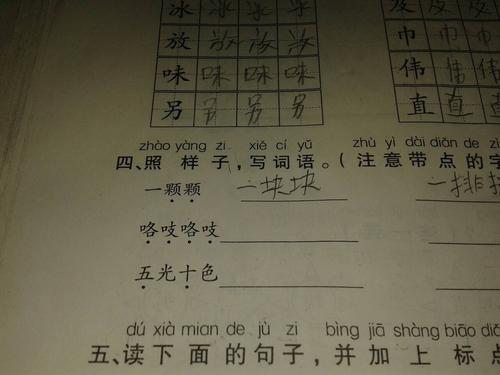 冰 冰 冰 冰
放 放 放 放
味 味 味 味
另 另 另 另
及 及 及
巾 巾 巾
伟 伟 伟
直 直 直
zhào yàng zi xiě cí yǔ zhù yì dài diǎn de zì
四、照 样 子，写词语。（注意带点的字
一颗颗 一块块 一排排
咯吱咯吱
五光十色
dú xià mian de jù zi bìng jiā shàng biāo diǎn
五、读下面的句子，并加上标点